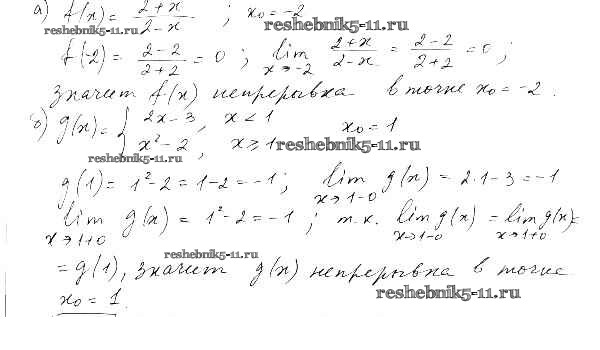 а) f(x) = (2+x)/(2-x) ; x₀ = -2
reshebnik5-11.ru
reshebnik5-11.ru
f(-2) = (2-2)/(2+2) = 0 ; lim x→-2 (2+x)/(2-x) = (2-2)/(2+2) = 0 ;
значит f(x) непрерывна в точке x₀ = -2 .
б) g(x) = { 2x-3 , x < 1
x²-2 , x ≥ 1 x₀ = 1
reshebnik5-11.ru
reshebnik5-11.ru
g(1) = 1²-2 = 1-2 = -1 ; lim x→1-0 g(x) = 2·1-3 = -1
lim x→1+0 g(x) = 1²-2 = -1 ; т.к. lim x→1-0 g(x) = lim x→1+0 g(x) =
reshebnik5-11.ru
= g(1), значит g(x) непрерывна в точке
reshebnik5-11.ru
x₀ = 1.